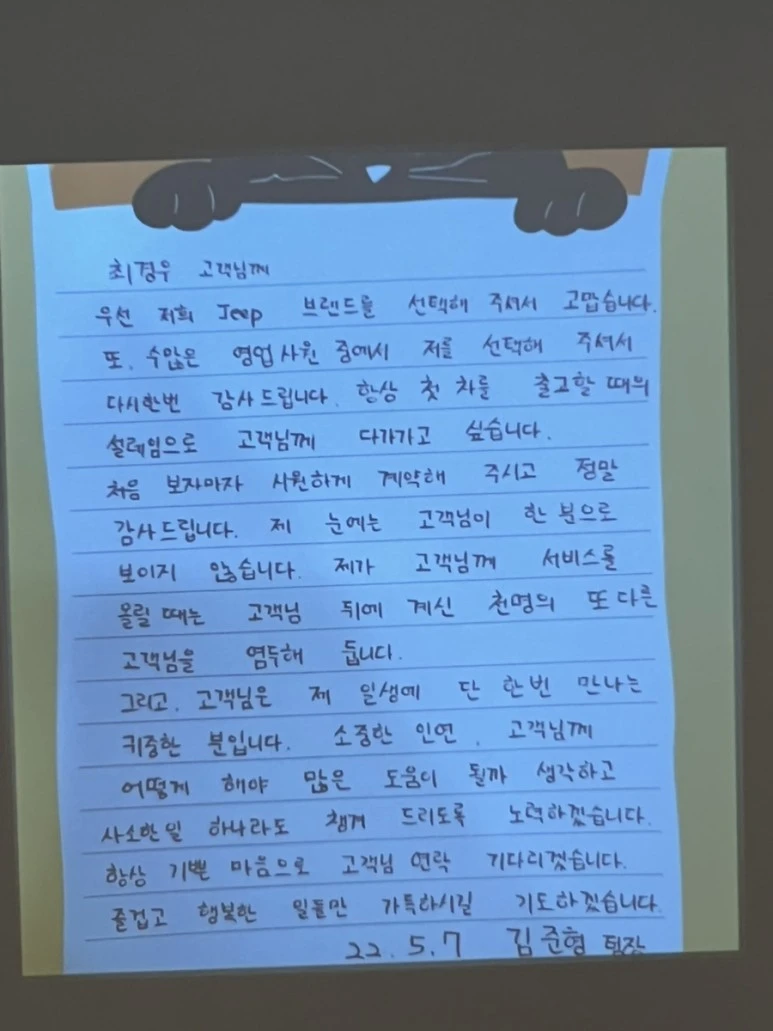 최경우 고객님께
우선 저희 Jeep 브랜드를 선택해 주셔서 고맙습니다.
또, 수많은 영업사원 중에서 저를 선택해 주셔서
다시한번 감사드립니다. 항상 첫 차를 출고할 때의
설레임으로 고객님께 다가가고 싶습니다.
처음 보자마자 시원하게 계약해 주시고 정말
감사드립니다. 제 눈에는 고객님이 한 분으로
보이지 않습니다. 제가 고객님께 서비스를
올릴 때는 고객님 뒤에 계신 천명의 또다른
고객님을 염두해 둡니다.
그리고, 고객님은 제 일생에 단 한번 만나는
귀중한 분입니다. 소중한 인연, 고객님께
어떻게 해야 많은 도움이 될까 생각하고
사소한일 하나라도 챙겨 드리도록 노력하겠습니다.
항상 기쁜 마음으로 고객님 연락 기다리겠습니다.
즐겁고 행복한 일들만 가득하시길 기도하겠습니다.
22.5.7 김준형 팀장